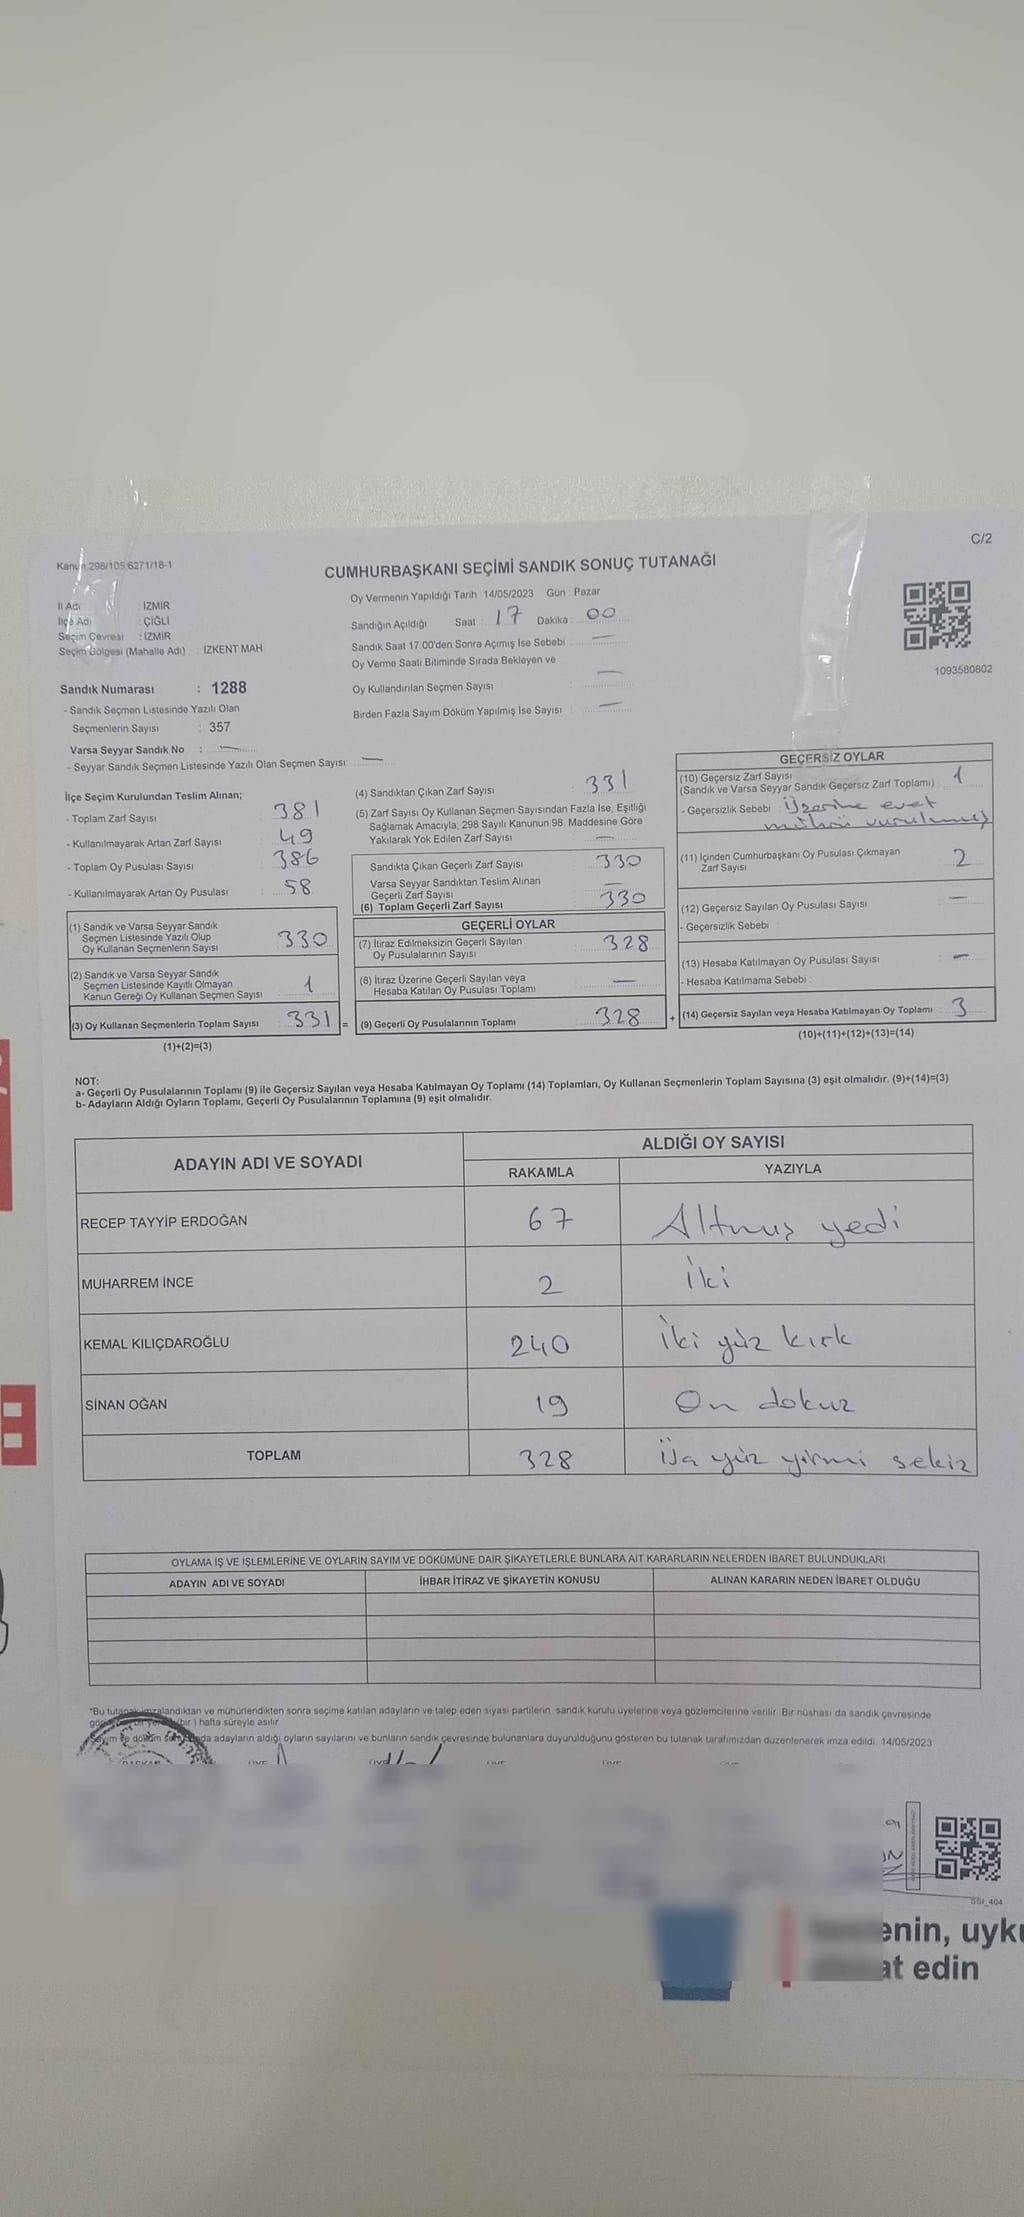 C/2
Kanun:298/105,6271/18-1
CUMHURBAŞKANI SEÇİMİ SANDIK SONUÇ TUTANAĞI
İl Adı : İZMİR
İlçe Adı : ÇİĞLİ
Seçim Çevresi : İZMİR
Seçim Bölgesi (Mahalle Adı) : İZKENT MAH
Sandık Numarası : 1288
- Sandık Seçmen Listesinde Yazılı Olan
Seçmenlerin Sayısı : 357
Varsa Seyyar Sandık No : —
- Seyyar Sandık Seçmen Listesinde Yazılı Olan Seçmen Sayısı: —
Oy Vermenin Yapıldığı Tarih :14/05/2023 Gün : Pazar
Sandığın Açıldığı Saat : 17 Dakika : 00
Sandık Saat 17:00'den Sonra Açımış İse Sebebi : —
Oy Verme Saati Bitiminde Sırada Bekleyen ve
Oy Kullandırılan Seçmen Sayısı : —
Birden Fazla Sayım Döküm Yapılmış İse Sayısı : —
1093580802
İlçe Seçim Kurulundan Teslim Alınan;
- Toplam Zarf Sayısı : 381
- Kullanılmayarak Artan Zarf Sayısı : 49
- Toplam Oy Pusulası Sayısı : 386
- Kullanılmayarak Artan Oy Pusulası : 58
(1) Sandık ve Varsa Seyyar Sandık
Seçmen Listesinde Yazılı Olup
Oy Kullanan Seçmenlerin Sayısı : 330
(2) Sandık ve Varsa Seyyar Sandık
Seçmen Listesinde Kayıtlı Olmayan
Kanun Gereği Oy Kullanan Seçmen Sayısı : 1
(3) Oy Kullanan Seçmenlerin Toplam Sayısı : 331 =
(1)+(2)=(3)
(4) Sandıktan Çıkan Zarf Sayısı : 331
(5) Zarf Sayısı Oy Kullanan Seçmen Sayısından Fazla İse, Eşitliği
Sağlamak Amacıyla; 298 Sayılı Kanunun 98. Maddesine Göre
Yakılarak Yok Edilen Zarf Sayısı : —
Sandıkta Çıkan Geçerli Zarf Sayısı : 330
Varsa Seyyar Sandıktan Teslim Alınan
Geçerli Zarf Sayısı : —
(6) Toplam Geçerli Zarf Sayısı : 330
GEÇERLİ OYLAR
(7) İtiraz Edilmeksizin Geçerli Sayılan
Oy Pusulalarının Sayısı : 328
(8) İtiraz Üzerine Geçerli Sayılan veya
Hesaba Katılan Oy Pusulası Toplamı : —
(9) Geçerli Oy Pusulalarının Toplamı : 328 +
GEÇERSİZ OYLAR
(10) Geçersiz Zarf Sayısı
(Sandık ve Varsa Seyyar Sandık Geçersiz Zarf Toplamı) : 1
- Geçersizlik Sebebi : Üzerine evet
mührü vurulmuş
(11) İçinden Cumhurbaşkanı Oy Pusulası Çıkmayan
Zarf Sayısı : 2
(12) Geçersiz Sayılan Oy Pusulası Sayısı : —
- Geçersizlik Sebebi :
(13) Hesaba Katılmayan Oy Pusulası Sayısı : —
- Hesaba Katılmama Sebebi :
(14) Geçersiz Sayılan veya Hesaba Katılmayan Oy Toplamı : 3
(10)+(11)+(12)+(13)=(14)
NOT:
a- Geçerli Oy Pusulalarının Toplamı (9) ile Geçersiz Sayılan veya Hesaba Katılmayan Oy Toplamı (14) Toplamları, Oy Kullanan Seçmenlerin Toplam Sayısına (3) eşit olmalıdır. (9)+(14)=(3)
b- Adayların Aldığı Oyların Toplamı, Geçerli Oy Pusulalarının Toplamına (9) eşit olmalıdır.
ADAYIN ADI VE SOYADI ALDIĞI OY SAYISI
RAKAMLA YAZIYLA
RECEP TAYYİP ERDOĞAN 67 Altmış yedi
MUHARREM İNCE 2 İki
KEMAL KILIÇDAROĞLU 240 İki yüz kırk
SİNAN OĞAN 19 On dokuz
TOPLAM 328 yüz yirmi sekiz
OYLAMA İŞ VE İŞLEMLERİNE VE OYLARIN SAYIM VE DÖKÜMÜNE DAİR ŞİKAYETLERLE BUNLARA AİT KARARLARIN NELERDEN İBARET BULUNDUKLARI
ADAYIN ADI VE SOYADI İHBAR İTİRAZ VE ŞİKAYETİN KONUSU ALINAN KARARIN NEDEN İBARET OLDUĞU
*Bu tutanak imzalandıktan ve mühürlendikten sonra seçime katılan adayların ve talep eden siyasi partilerin sandık kurulu üyelerine veya gözlemcilerine verilir. Bir nüshası da sandık çevresinde
bir ) hafta süreyle asılır.
Sayım ve döküm adayların aldığı oyların sayılarını ve bunların sandık çevresinde bulunanlara duyurulduğunu gösteren bu tutanak tarafımızdan düzenlenerek imza edildi. 14/05/2023
404
enin, uyku
at edin